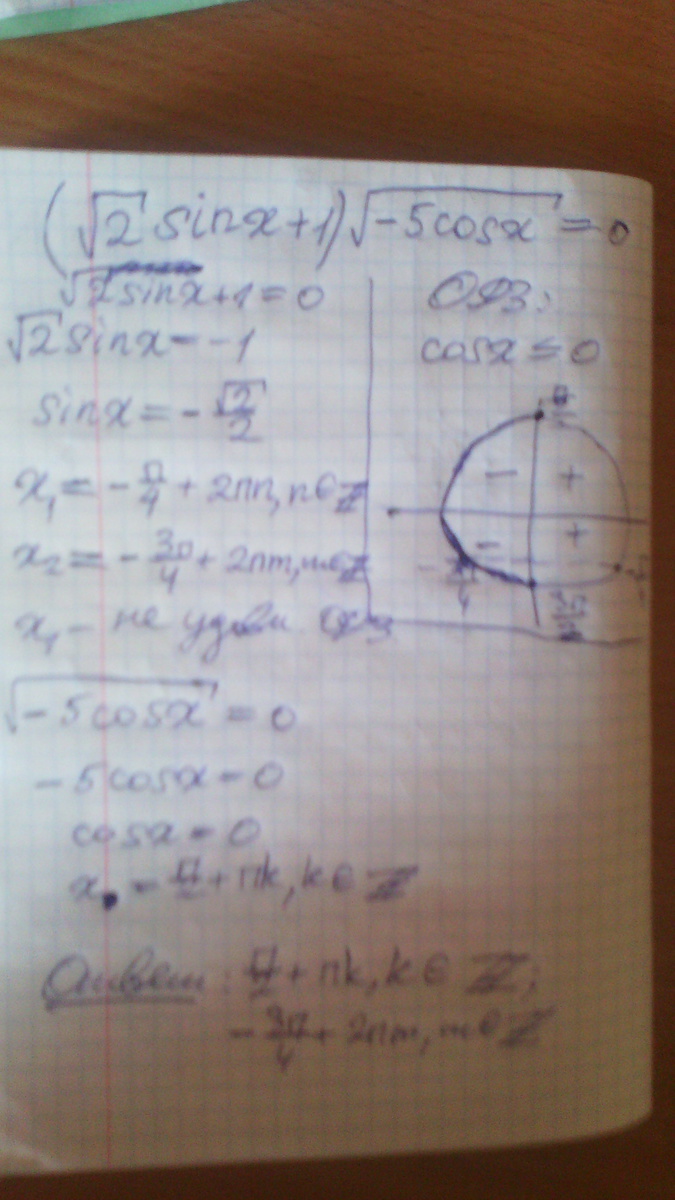 (√2 sinx+1)√-5cosx = 0
√2sinx+1=0
√2 sinx=-1
sinx = -√2/2
x₁ = -π/4 + 2πn, n∈Z
x₂ = -3π/4 + 2πm, m∈Z
x₁ - не удовл. ОДЗ
ОДЗ:
cosx ≤ 0
π/2
- +
- +
-3π/4
3π/2
√-5cosx = 0
-5cosx = 0
cosx = 0
x = π/2 + πk, k∈Z
Ответ: π/2 + πk, k∈Z;
-3π/4 + 2πm, m∈Z